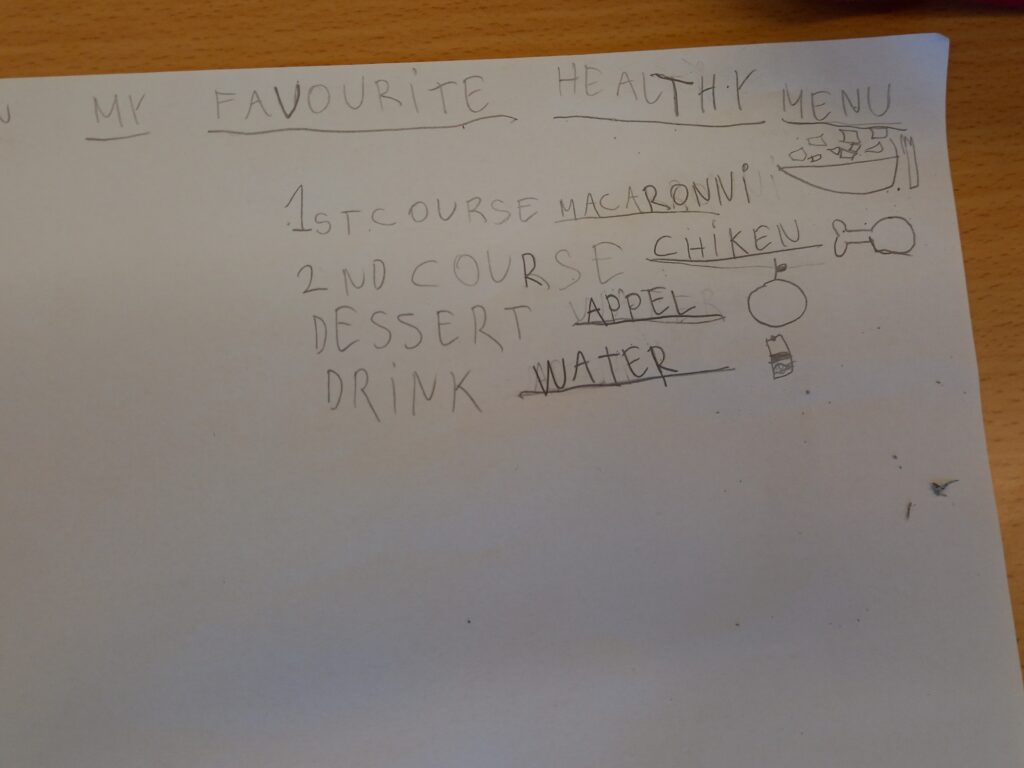 MY FAVOURITE HEALTHY MENU
1ST.COURSE MACARONNI
2ND COURSE CHIKEN
DESSERT APPEL
DRINK WATER